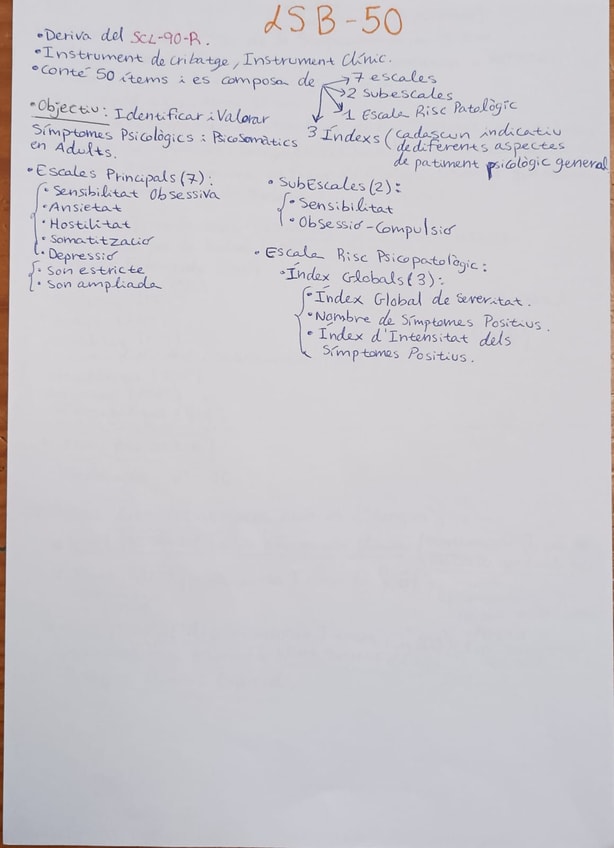 LSB-50
• Deriva del SCL-90-R.
• Instrument de cribatge, Instrument Clínic.
• Conté 50 ítems i es composa de → 7 escales
→ 2 subescales
→ 1 Escala Risc Patològic
→ 3 Índexs (cadascun indicatiu
de diferents aspectes
de patiment psicològic general
• Objectiu: Identificar i Valorar
Símptomes Psicològics i Psicosomàtics
en Adults.
• Escales Principals (7):
• Sensibilitat Obsessiva
• Ansietat
• Hostilitat
• Somatització
• Depressió
• Son estricte
• Son ampliada
• SubEscales (2):
• Sensibilitat
• Obsessió-Compulsió
• Escala Risc Psicopatològic:
• Índex Globals (3):
• Índex Global de Severitat.
• Nombre de Símptomes Positius.
• Índex d'Intensitat dels
Símptomes Positius.